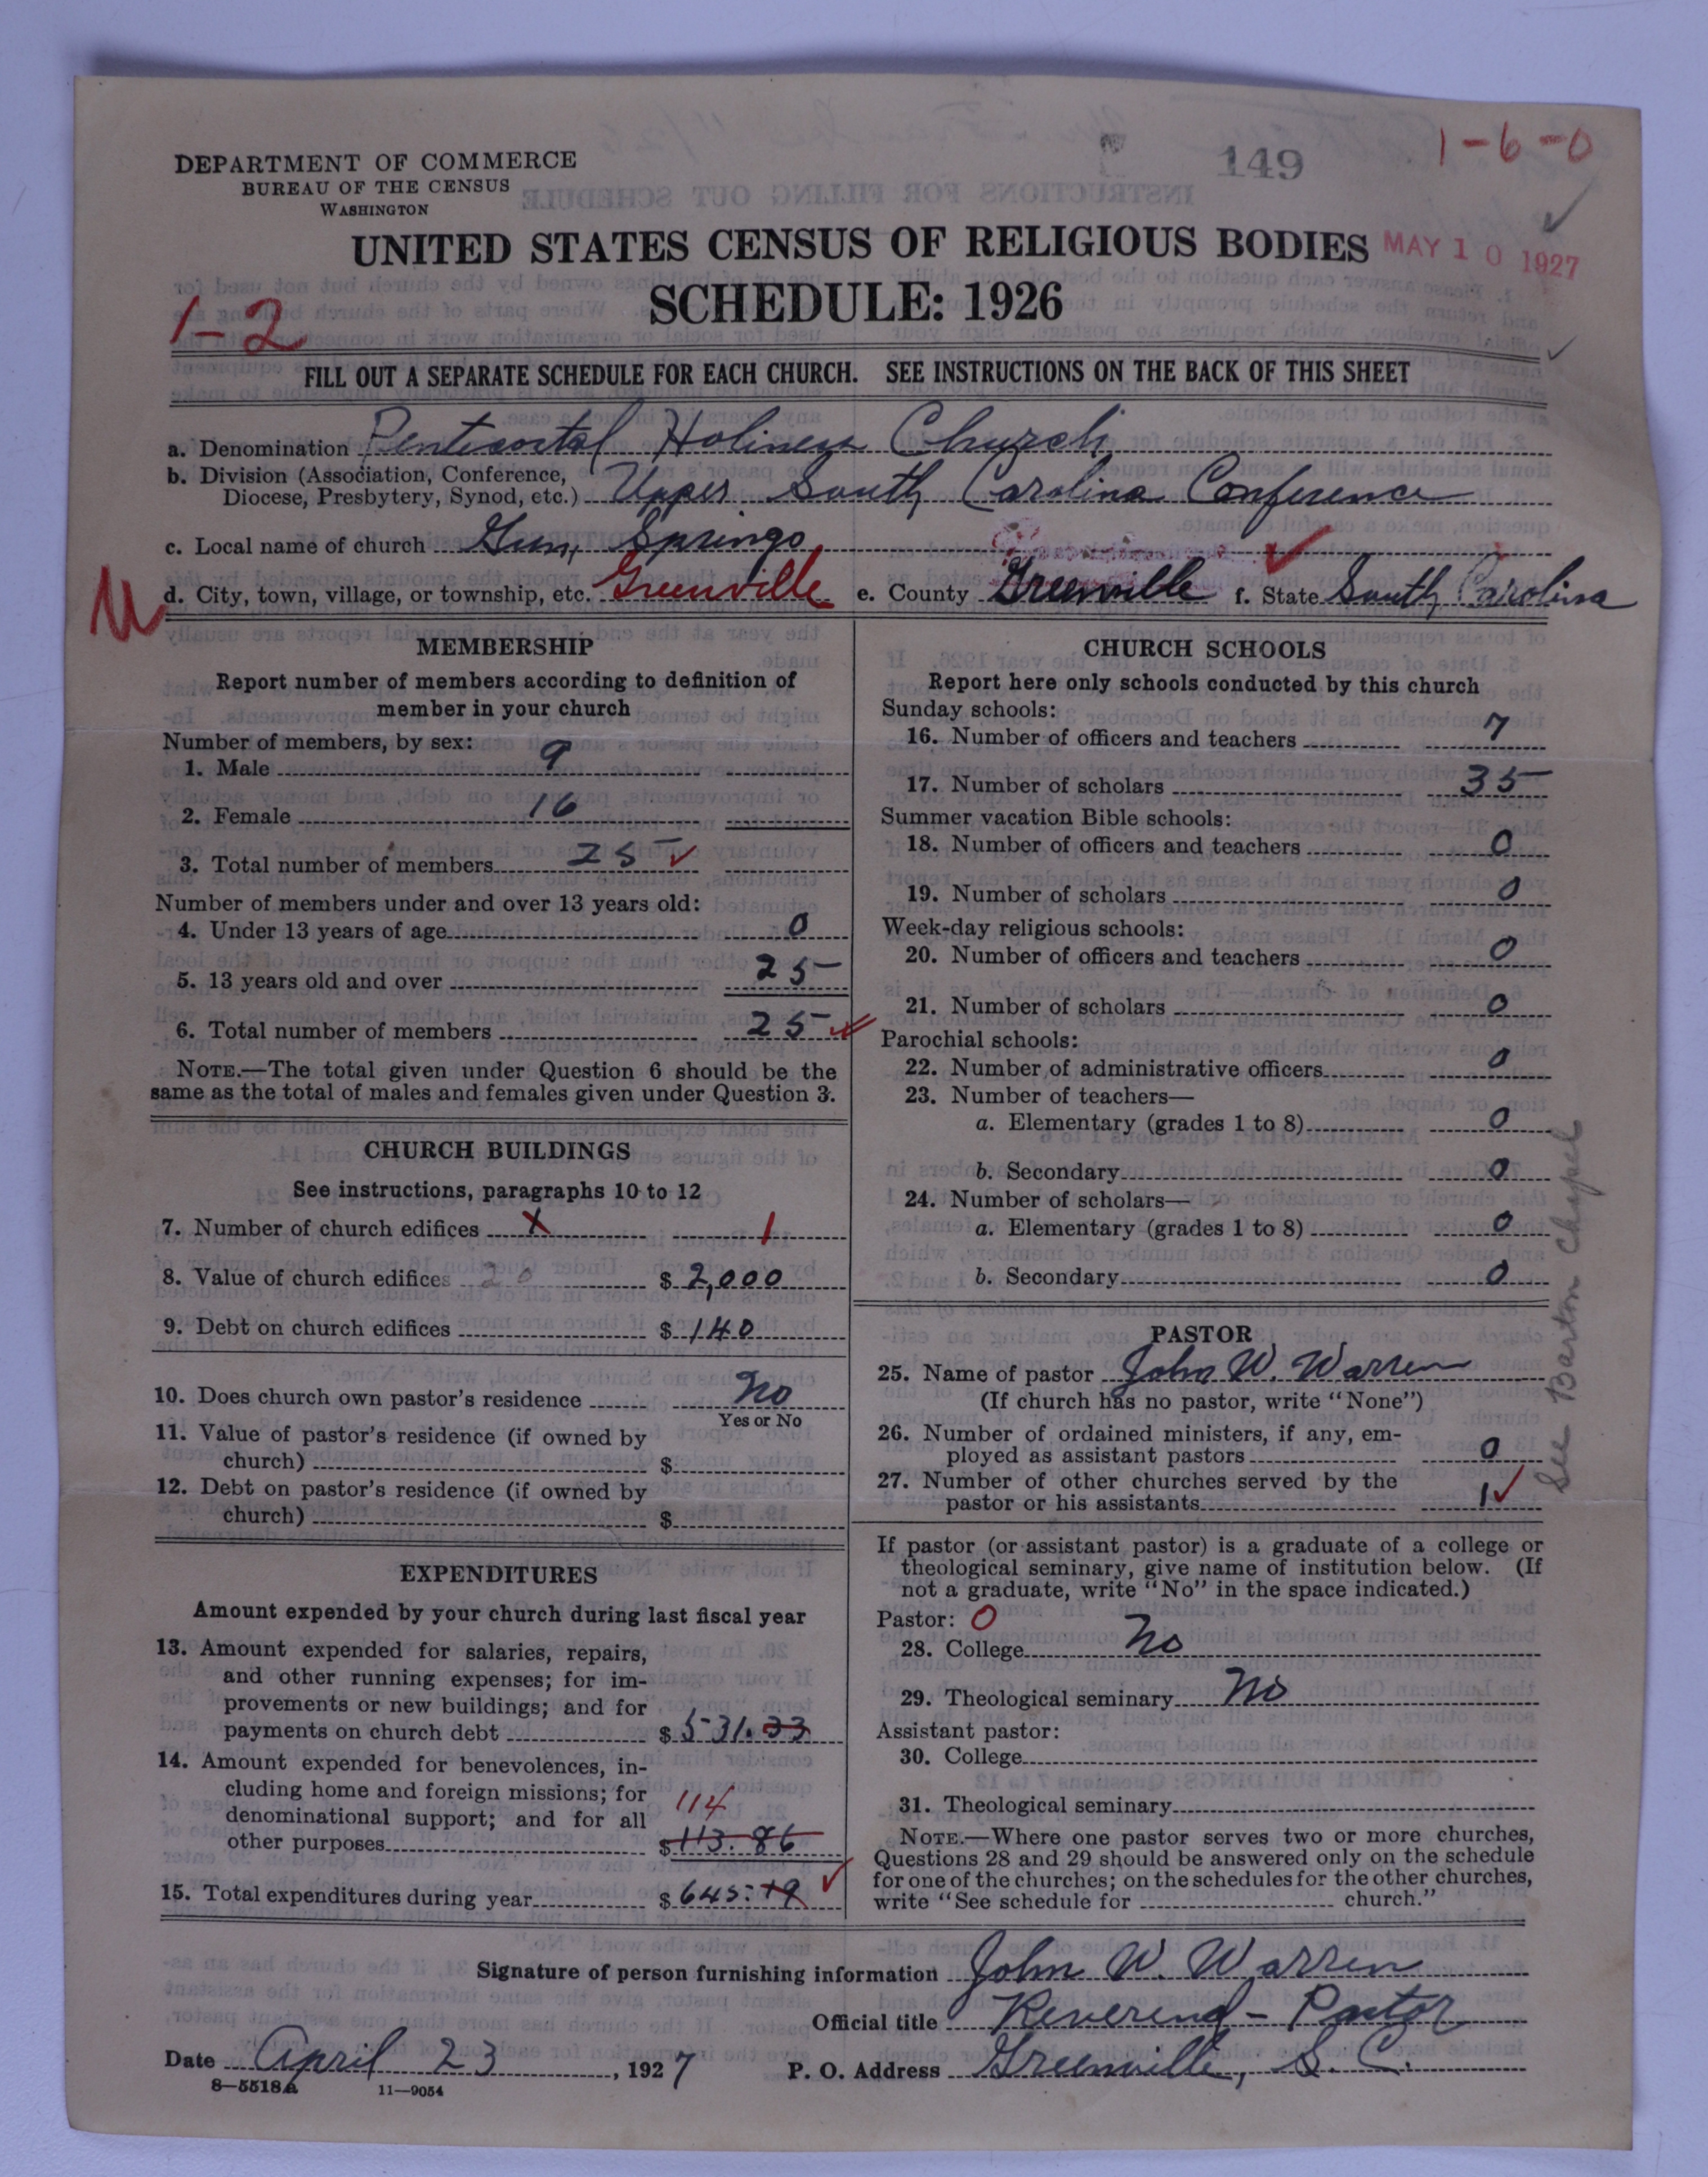 149
1-6-0
DEPARTMENT OF COMMERCE
BUREAU OF THE CENSUS
WASHINGTON
UNITED STATES CENSUS OF RELIGIOUS BODIES
MAY 10 1927
SCHEDULE: 1926
1-2
FILL OUT A SEPARATE SCHEDULE FOR EACH CHURCH. SEE INSTRUCTIONS ON THE BACK OF THIS SHEET
a. Denomination Pentecostal Holiness Church
b. Division (Association, Conference,
Diocese, Presbytery, Synod, etc.) Upper South Carolina Conference
c. Local name of church Gum Springs
d. City, town, village, or township, etc. Greenville e. County Greenville f. State South Carolina
MEMBERSHIP
Report number of members according to definition of
member in your church
Number of members, by sex:
1. Male 9
2. Female 16
3. Total number of members 25
Number of members under and over 13 years old:
4. Under 13 years of age 0
5. 13 years old and over 25
6. Total number of members 25
NOTE.—The total given under Question 6 should be the
same as the total of males and females given under Question 3.
CHURCH BUILDINGS
See instructions, paragraphs 10 to 12
7. Number of church edifices X 1
8. Value of church edifices 20 $ 2,000
9. Debt on church edifices $ 140
10. Does church own pastor's residence No
Yes or No
11. Value of pastor's residence (if owned by
church) $
12. Debt on pastor's residence (if owned by
church) $
EXPENDITURES
Amount expended by your church during last fiscal year
13. Amount expended for salaries, repairs,
and other running expenses; for im-
provements or new buildings; and for
payments on church debt $ 531.33
14. Amount expended for benevolences, in-
cluding home and foreign missions; for
denominational support; and for all
114
other purposes $ 113.86
15. Total expenditures during year $ 645.19
CHURCH SCHOOLS
Report here only schools conducted by this church
Sunday schools:
16. Number of officers and teachers 7
17. Number of scholars 35
Summer vacation Bible schools:
18. Number of officers and teachers 0
19. Number of scholars 0
Week-day religious schools:
20. Number of officers and teachers 0
21. Number of scholars 0
Parochial schools:
22. Number of administrative officers 0
23. Number of teachers—
a. Elementary (grades 1 to 8) 0
b. Secondary 0
24. Number of scholars—
a. Elementary (grades 1 to 8) 0
b. Secondary 0
See Barton Chapel
PASTOR
25. Name of pastor John W. Warren
(If church has no pastor, write "None")
26. Number of ordained ministers, if any, em-
ployed as assistant pastors 0
27. Number of other churches served by the
pastor or his assistants 1
If pastor (or assistant pastor) is a graduate of a college or
theological seminary, give name of institution below. (If
not a graduate, write "No" in the space indicated.)
Pastor: 0
28. College No
29. Theological seminary No
Assistant pastor:
30. College
31. Theological seminary
NOTE.—Where one pastor serves two or more churches,
Questions 28 and 29 should be answered only on the schedule
for one of the churches; on the schedules for the other churches,
write "See schedule for church."
Signature of person furnishing information John W. Warren
Official title Reverend - Pastor
Date April 23, 1927 P. O. Address Greenville, S. C.
8—5518a 11—9054